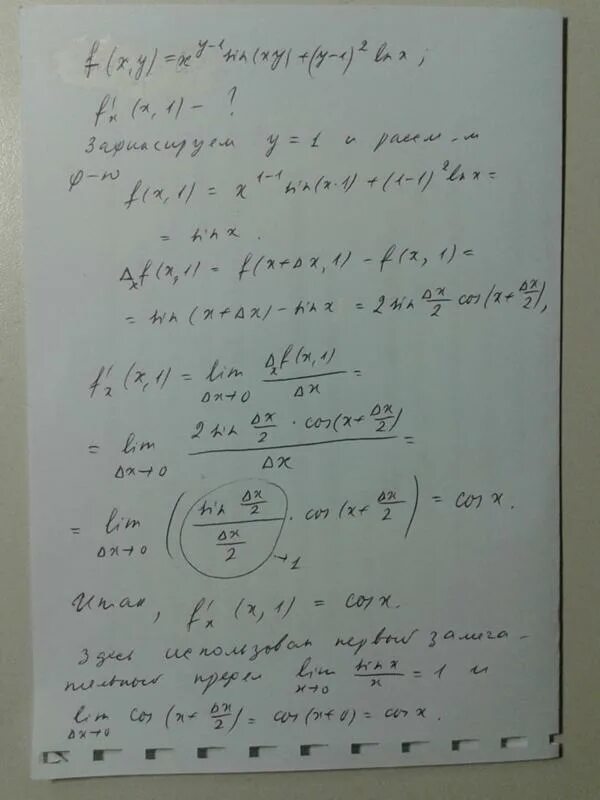 f(x,y) = x^{y-1} sin(xy) + (y-1)^2 ln x;
f'_x (x,1) - ?
Зафиксируем y = 1 и рассм-м
ф-ю
f(x,1) = x^{1-1} sin(x·1) + (1-1)^2 ln x =
= sin x.
Δ_x f(x,1) = f(x+Δx,1) - f(x,1) =
= sin(x+Δx) - sin x = 2 sin \frac{Δx}{2} cos(x+\frac{Δx}{2}),
f'_x (x,1) = \lim_{Δx→0} \frac{Δ_x f(x,1)}{Δx} =
= \lim_{Δx→0} \frac{2 sin \frac{Δx}{2} · cos(x+\frac{Δx}{2})}{Δx} =
= \lim_{Δx→0} (\frac{sin \frac{Δx}{2}}{\frac{Δx}{2}} · cos(x+\frac{Δx}{2})) = cos x.
→1
Итак, f'_x (x,1) = cos x.
Здесь использован первый замеча-
тельный предел \lim_{x→0} \frac{sin x}{x} = 1 и
\lim_{Δx→0} cos(x+\frac{Δx}{2}) = cos(x+0) = cos x.